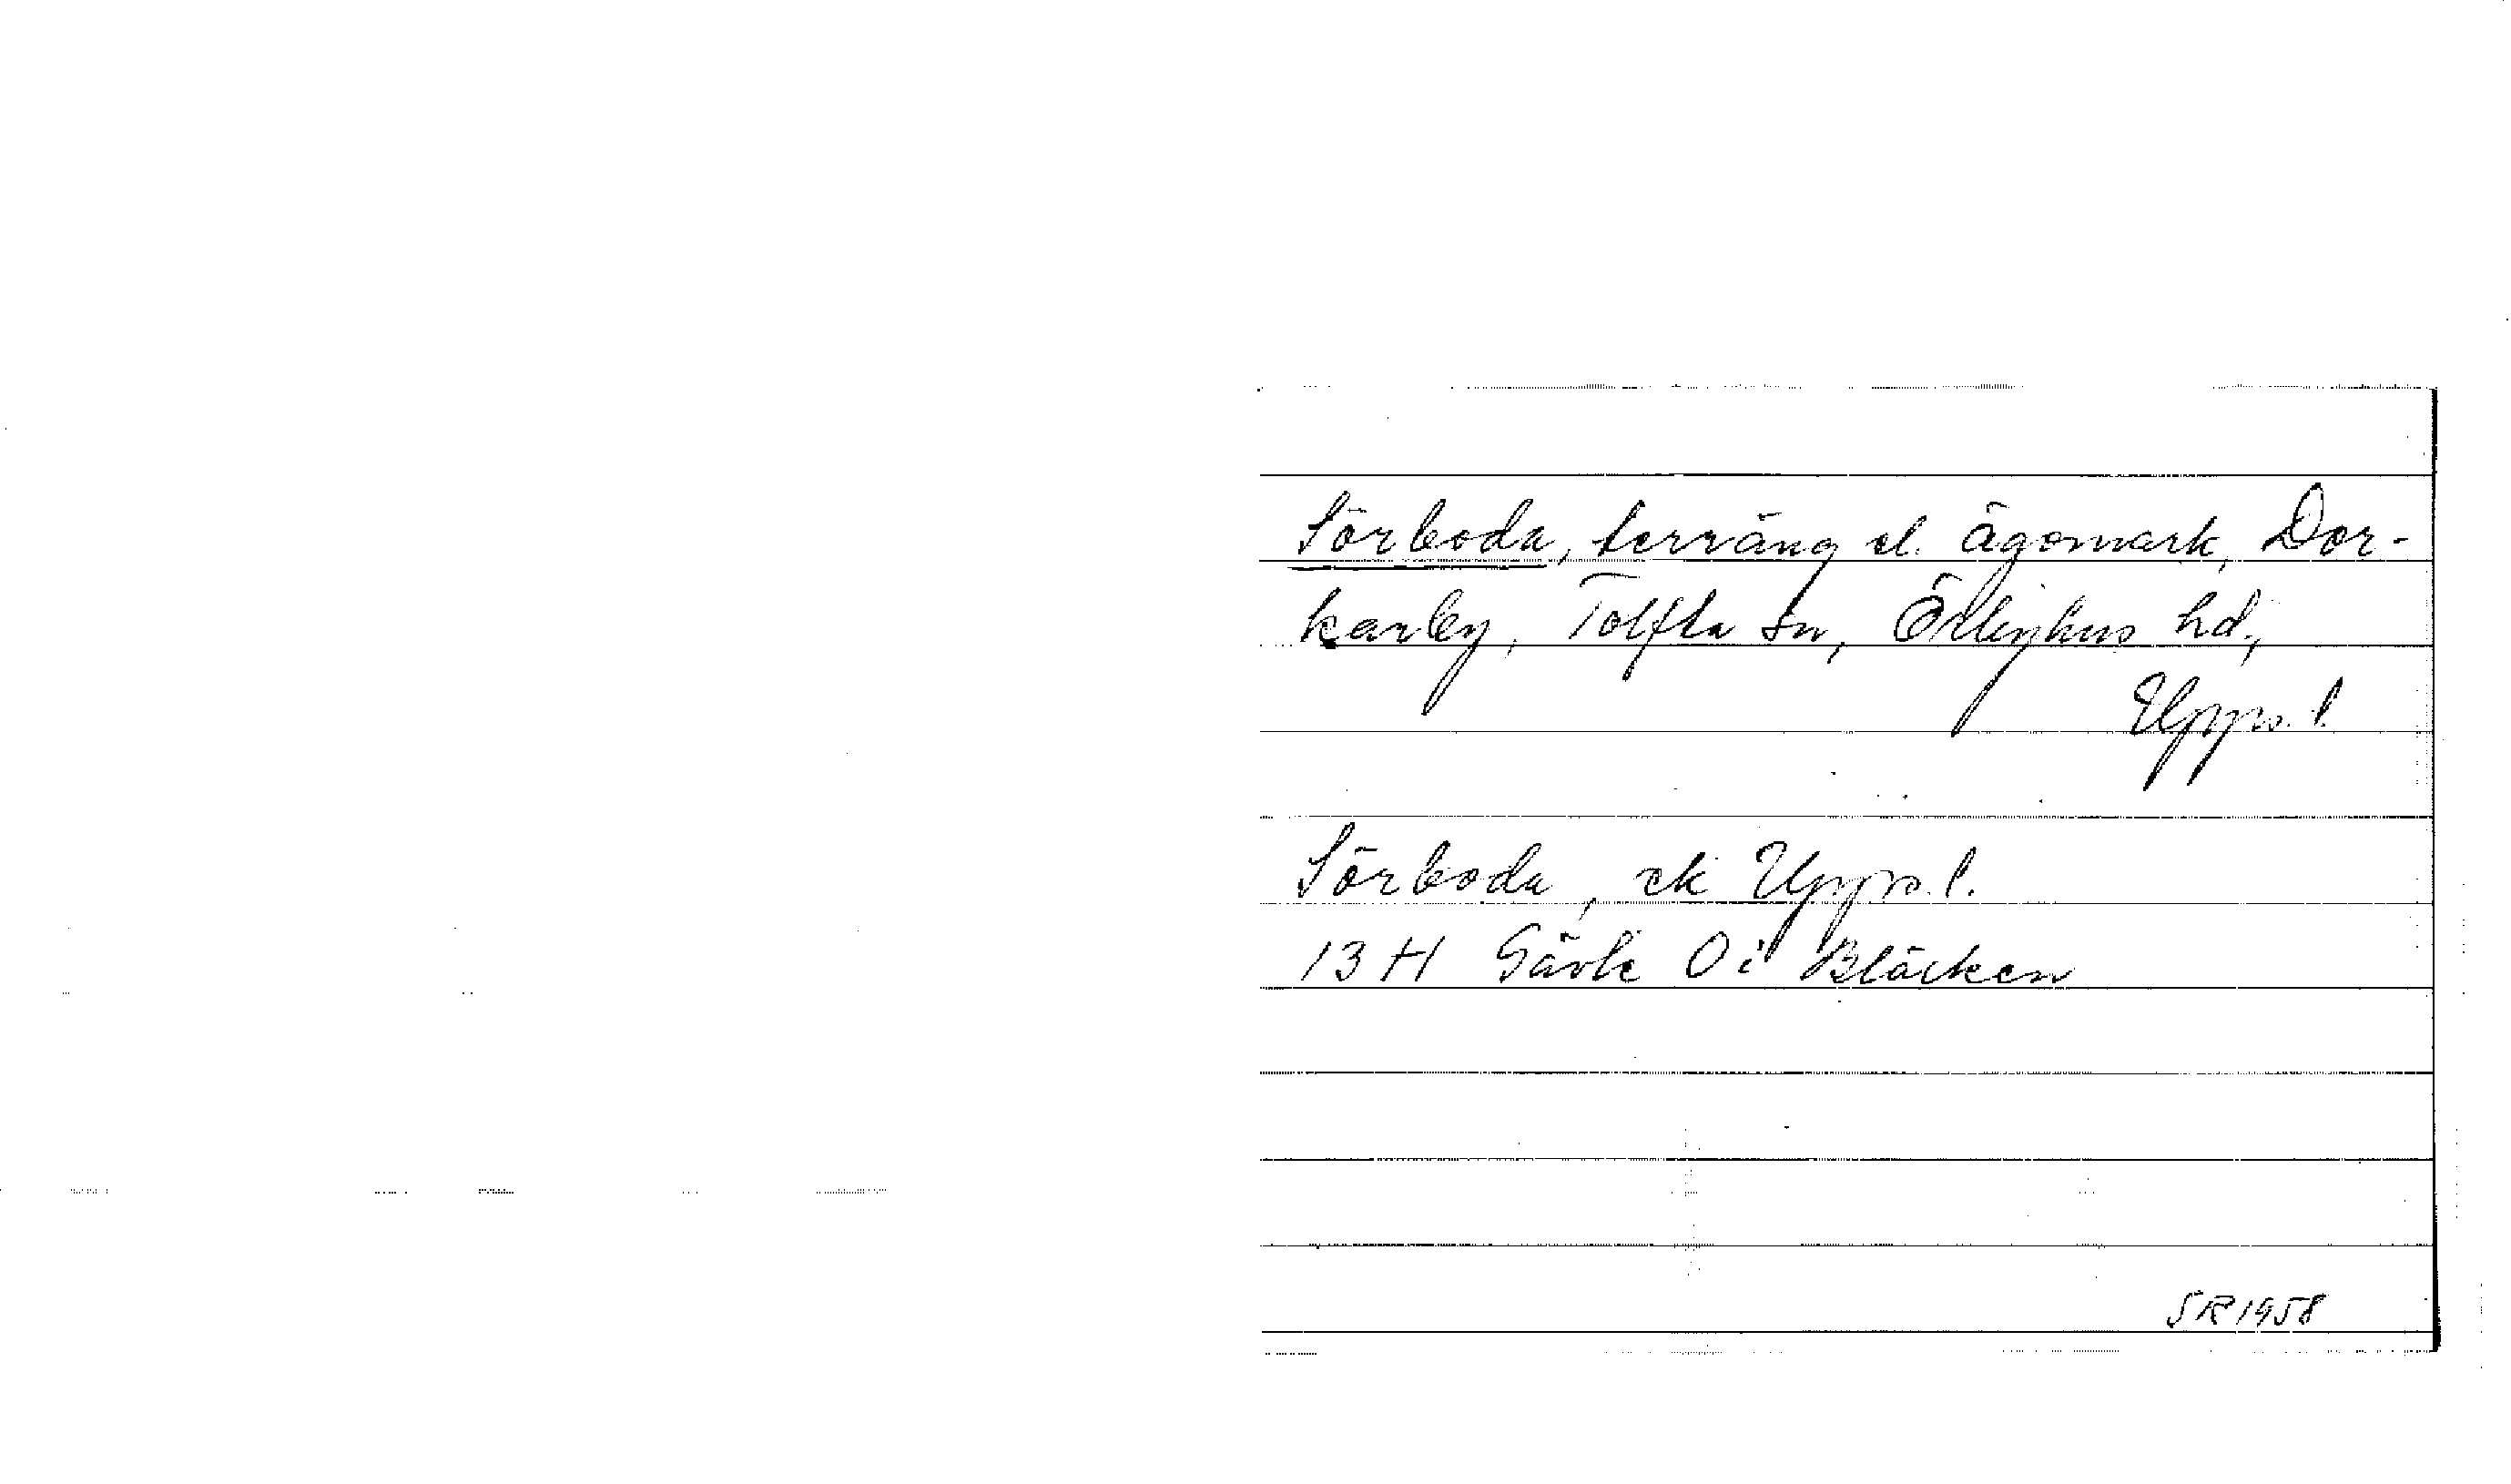 Sörboda, terräng el. ägomark, Dor-
karby, Tolfta sn, Örbyhus hd,
Upps. l.
Sörboda, ek Upps. l.
13 H Gävle O i Bläcken
SR 1958